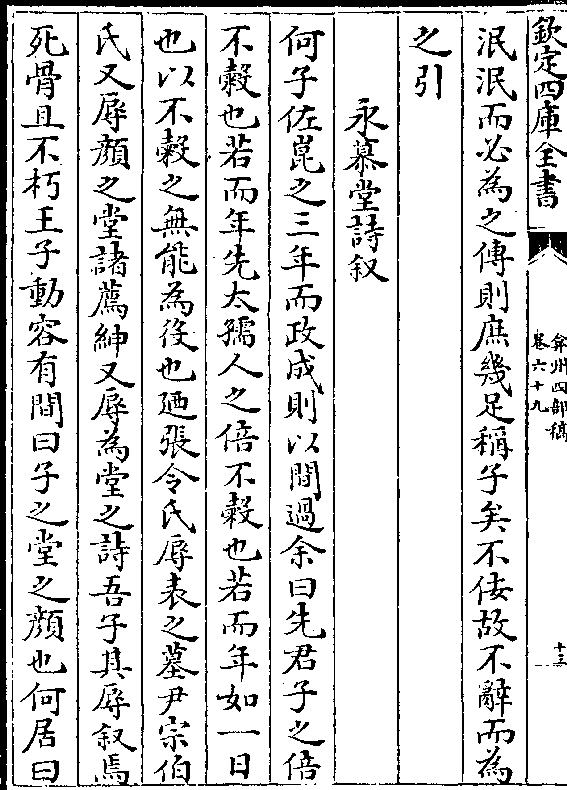 欽定四庫全書
弇州四部稿
卷六十九
十三
泯泯而必為之傳則庶幾足稱子矣不佞故不辭而為
之引
永慕堂詩叙
何子佐崑之三年而政成則以間過余曰先君子之倍
不穀也若而年先太孺人之倍不穀也若而年如一日
也以不穀之無能為役也廼張令氏辱表之墓尹宗伯
氏又辱顔之堂諸薦紳又辱為堂之詩吾子其辱叙焉
死骨且不朽王子動容有間曰子之堂之顔也何居曰